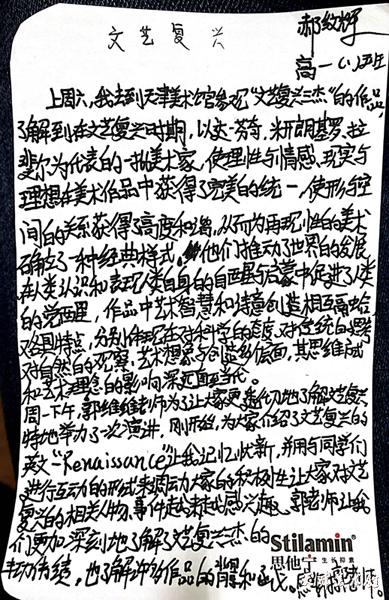 文艺复兴
郝纹辉
高一(1)班
上周六,我去到天津美术馆参观"文艺复兴三杰"的作品,
了解到在文艺复兴时期,以达·芬奇、米开朗基罗、拉
斐尔为代表的一批美术家,使理性与情感、现实与
理想在美术作品中获得了完美的统一,使形与空
间的关系获得了高度和谐,从而为再现性的美术
确立了一种经典样式。他们推动了世界的发展
在人类认识和表现人类自身的自醒与启蒙中促进了人类
的觉醒,作品中艺术智慧和诗意创造相互高
各具特点,分别体现在对科学的态度、对传统的思考
对自然的观察、艺术想象与创造等层面,其思维
和艺术理念的影响深远直至当代。
周一下午,郭维维老师为了让大家更深切地了解文艺复兴
特地举办了一次演讲,刚开始,为大家介绍了文艺复兴的
英文"Renaissance"让我记忆犹新,并用与同学们
进行互动的形式来调动大家的积极性让大家对文艺
复兴的相关人物、事件起来越感兴趣。郭老师让我
们更加深刻地了解了文艺复兴三杰的
丰功伟绩,也了解了作品的背景和
Stilamin
思他宁
生长抑素